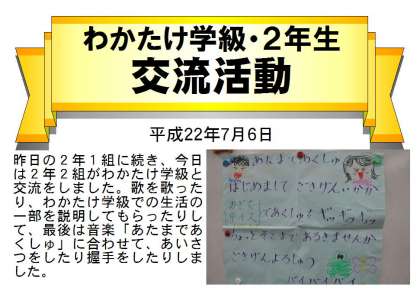 わかたけ学級・２年生
交流活動
平成22年7月6日
昨日の２年１組に続き、今日
は２年２組がわかたけ学級と
交流をしました。歌を歌った
り、わかたけ学級での生活の
一部を説明してもらったりし
て、最後は音楽「あたまであ
くしゅ」に合わせて、あいさ
つをしたり握手をしたりしま
した。
あたまであくしゅ
はじめまして ごきげんいかが
であくしゅ ギュッギュッギュッ
ちょっとそこまで あるきませんか
ごきげんよろしゅう
バイバイバイ